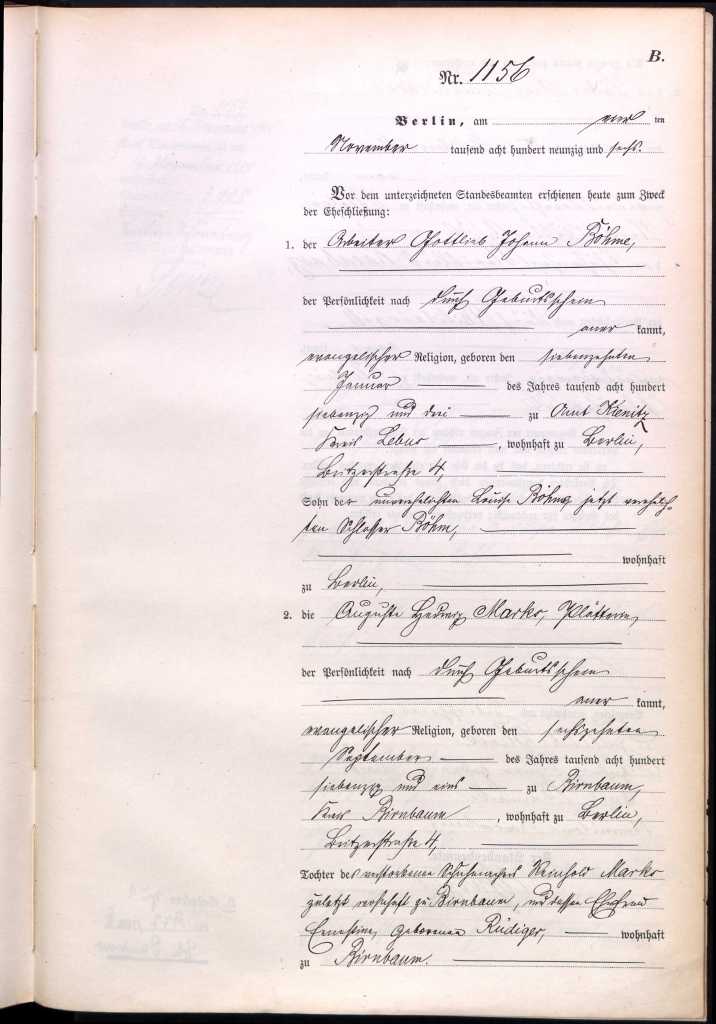 B.
Nr. 1156
Berlin, am vier ten
November tausend acht hundert neunzig und sechs.
Vor dem unterzeichneten Standesbeamten erschienen heute zum Zweck
der Eheschließung:
1. der Arbeiter Gottlieb Johann Böhme,
der Persönlichkeit nach durch Geburtsschein
aner kannt,
evangelischer Religion, geboren den siebenzehnten
Januar des Jahres tausend acht hundert
siebenzig und drei zu Amt Kienitz
Kreis Lebus, wohnhaft zu Berlin,
Britzerstraße 4,
Sohn der unverehelichten Louise Böhme, jetzt verehelich-
ten Schlosser Böhm,
wohnhaft
zu Berlin,
2. die Auguste Hedwig Marks, Plätterin,
der Persönlichkeit nach durch Geburtsschein
aner kannt,
evangelischer Religion, geboren den sechszehnten
September des Jahres tausend acht hundert
siebenzig und eins zu Birnbaum,
Kreis Birnbaum, wohnhaft zu Berlin,
Britzerstraße 4,
Tochter des verstorbenen Schuhmachers Reinhold Marks
zuletzt wohnhaft zu Birnbaum, und dessen Ehefrau
Ernestine, geborenen Rüdiger, wohnhaft
zu Birnbaum.